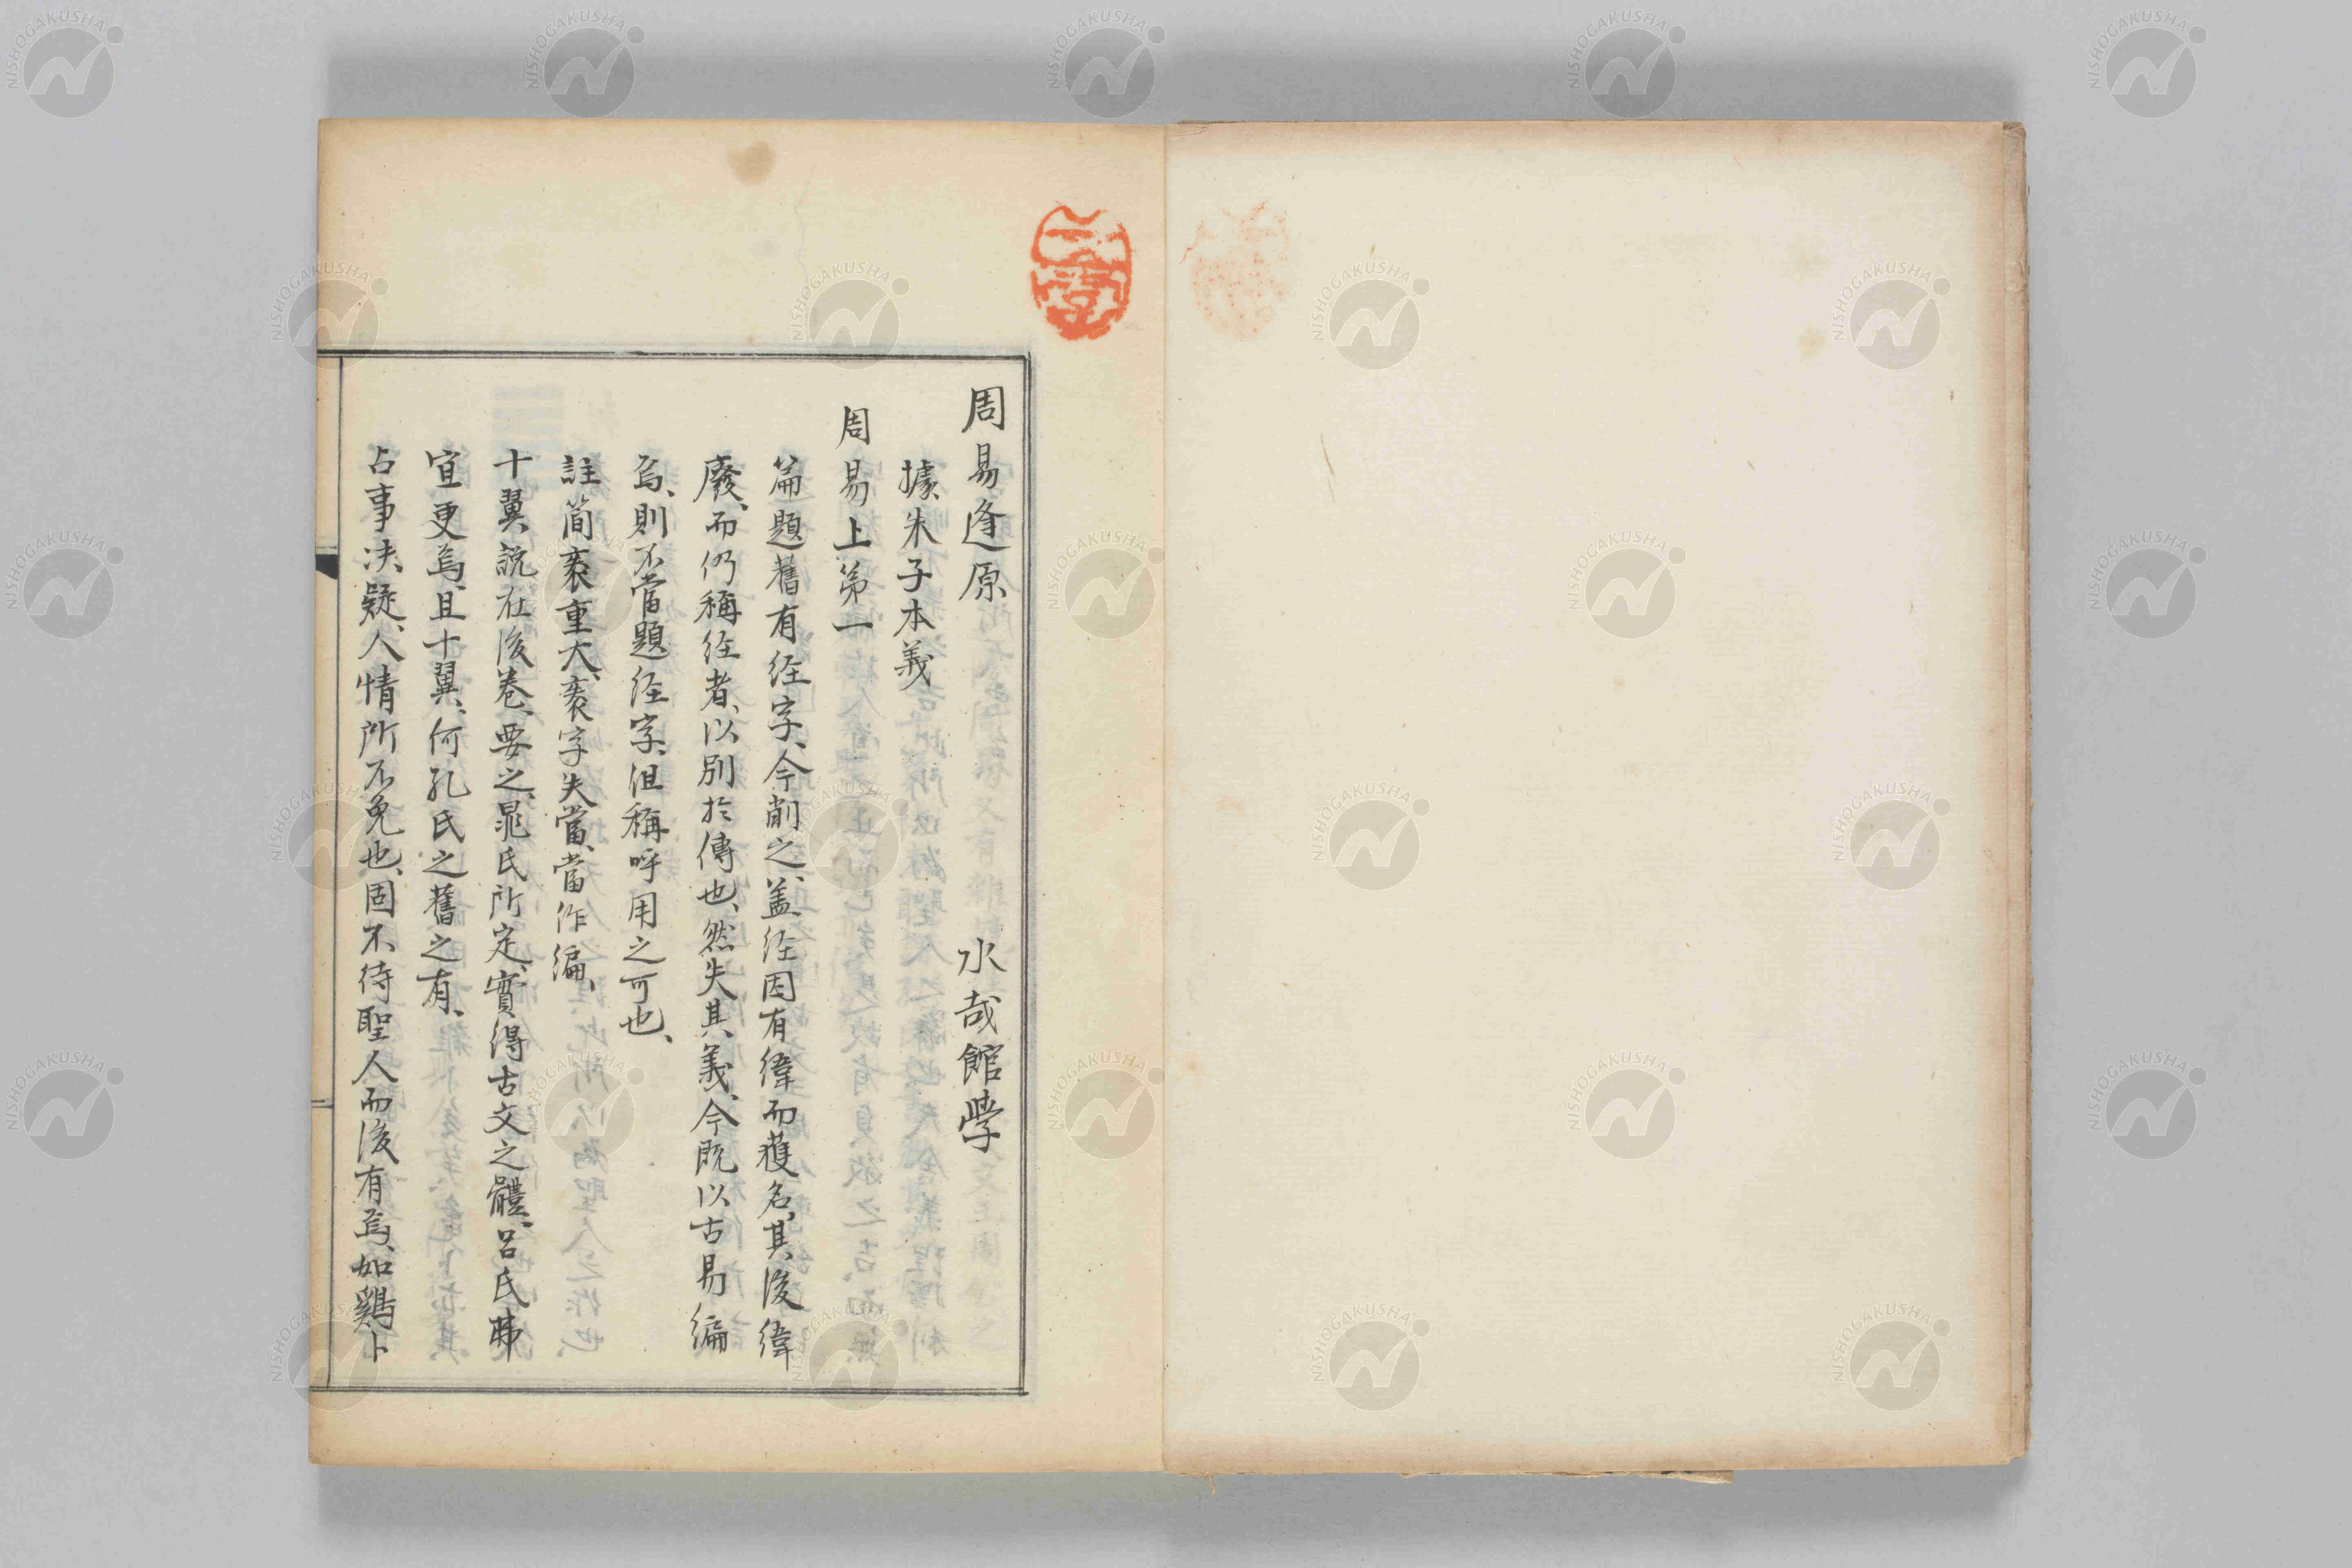 周易逢原　水哉館學
據朱子本義
周易上第一
篇題舊有経字、今削之、盖経因有緯而獲名、其後緯
廢、而仍稱経者、以別於傳也、然失其義、今既以古易編
焉、則不當題経字、但稱呼用之可也、
註簡袠重大、袠字失當、當作編、
十翼說在後卷、要之、晁氏所定、實得古文之體、呂氏
宜更焉、且十翼、何孔氏之舊之有、
占事决疑、人情所不免也、固不待聖人而後有焉、如鷄卜
NISHOGAKUSHA